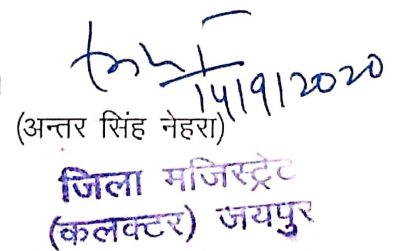 14/9/2020
(अन्तर सिंह नेहरा)
जिला मजिस्ट्रेट
(कलक्टर) जयपुर